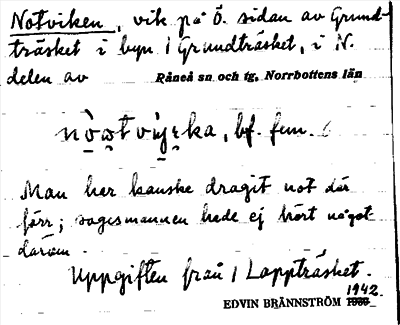 Notviken, vik på Ö. sidan av Grund-
träsket i byn 1 Grundträsket, i N.
delen av Råneå sn och tg, Norrbottens län
bf. fem.
Man har kanske dragit not där
förr; sagesmannen hade ej hört något
därom.
Uppgiften från 1 Lappträsket.
1942
EDVIN BRÄNNSTRÖM 1939